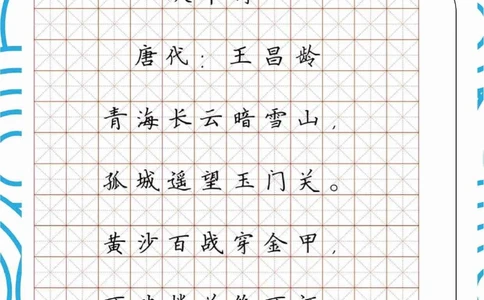 唐代：王昌龄
青海长云暗雪山，
孤城遥望玉门关。
黄沙百战穿金甲，